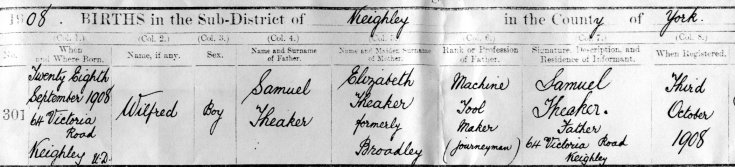 1908. BIRTHS in the Sub-District of Keighley in the County of York.
(Col. 1.) (Col. 2.) (Col. 3.) (Col. 4.) (Col. 6.) (Col. 7.) (Col. 8.)
No. When and Where Born. Name, if any. Sex. Name and Surname of Father. Name and Maiden Surname of Mother. Rank or Profession of Father. Signature, Description, and Residence of Informant. When Registered.
301
Twenty Eighth
September 1908
64 Victoria
Road
Keighley U.D.
Wilfred
Boy
Samuel
Theaker
Elizabeth
Theaker
formerly
Broadley
Machine
Tool
Maker
(journeyman)
Samuel
Theaker.
Father
64 Victoria Road
Keighley
Third
October
1908